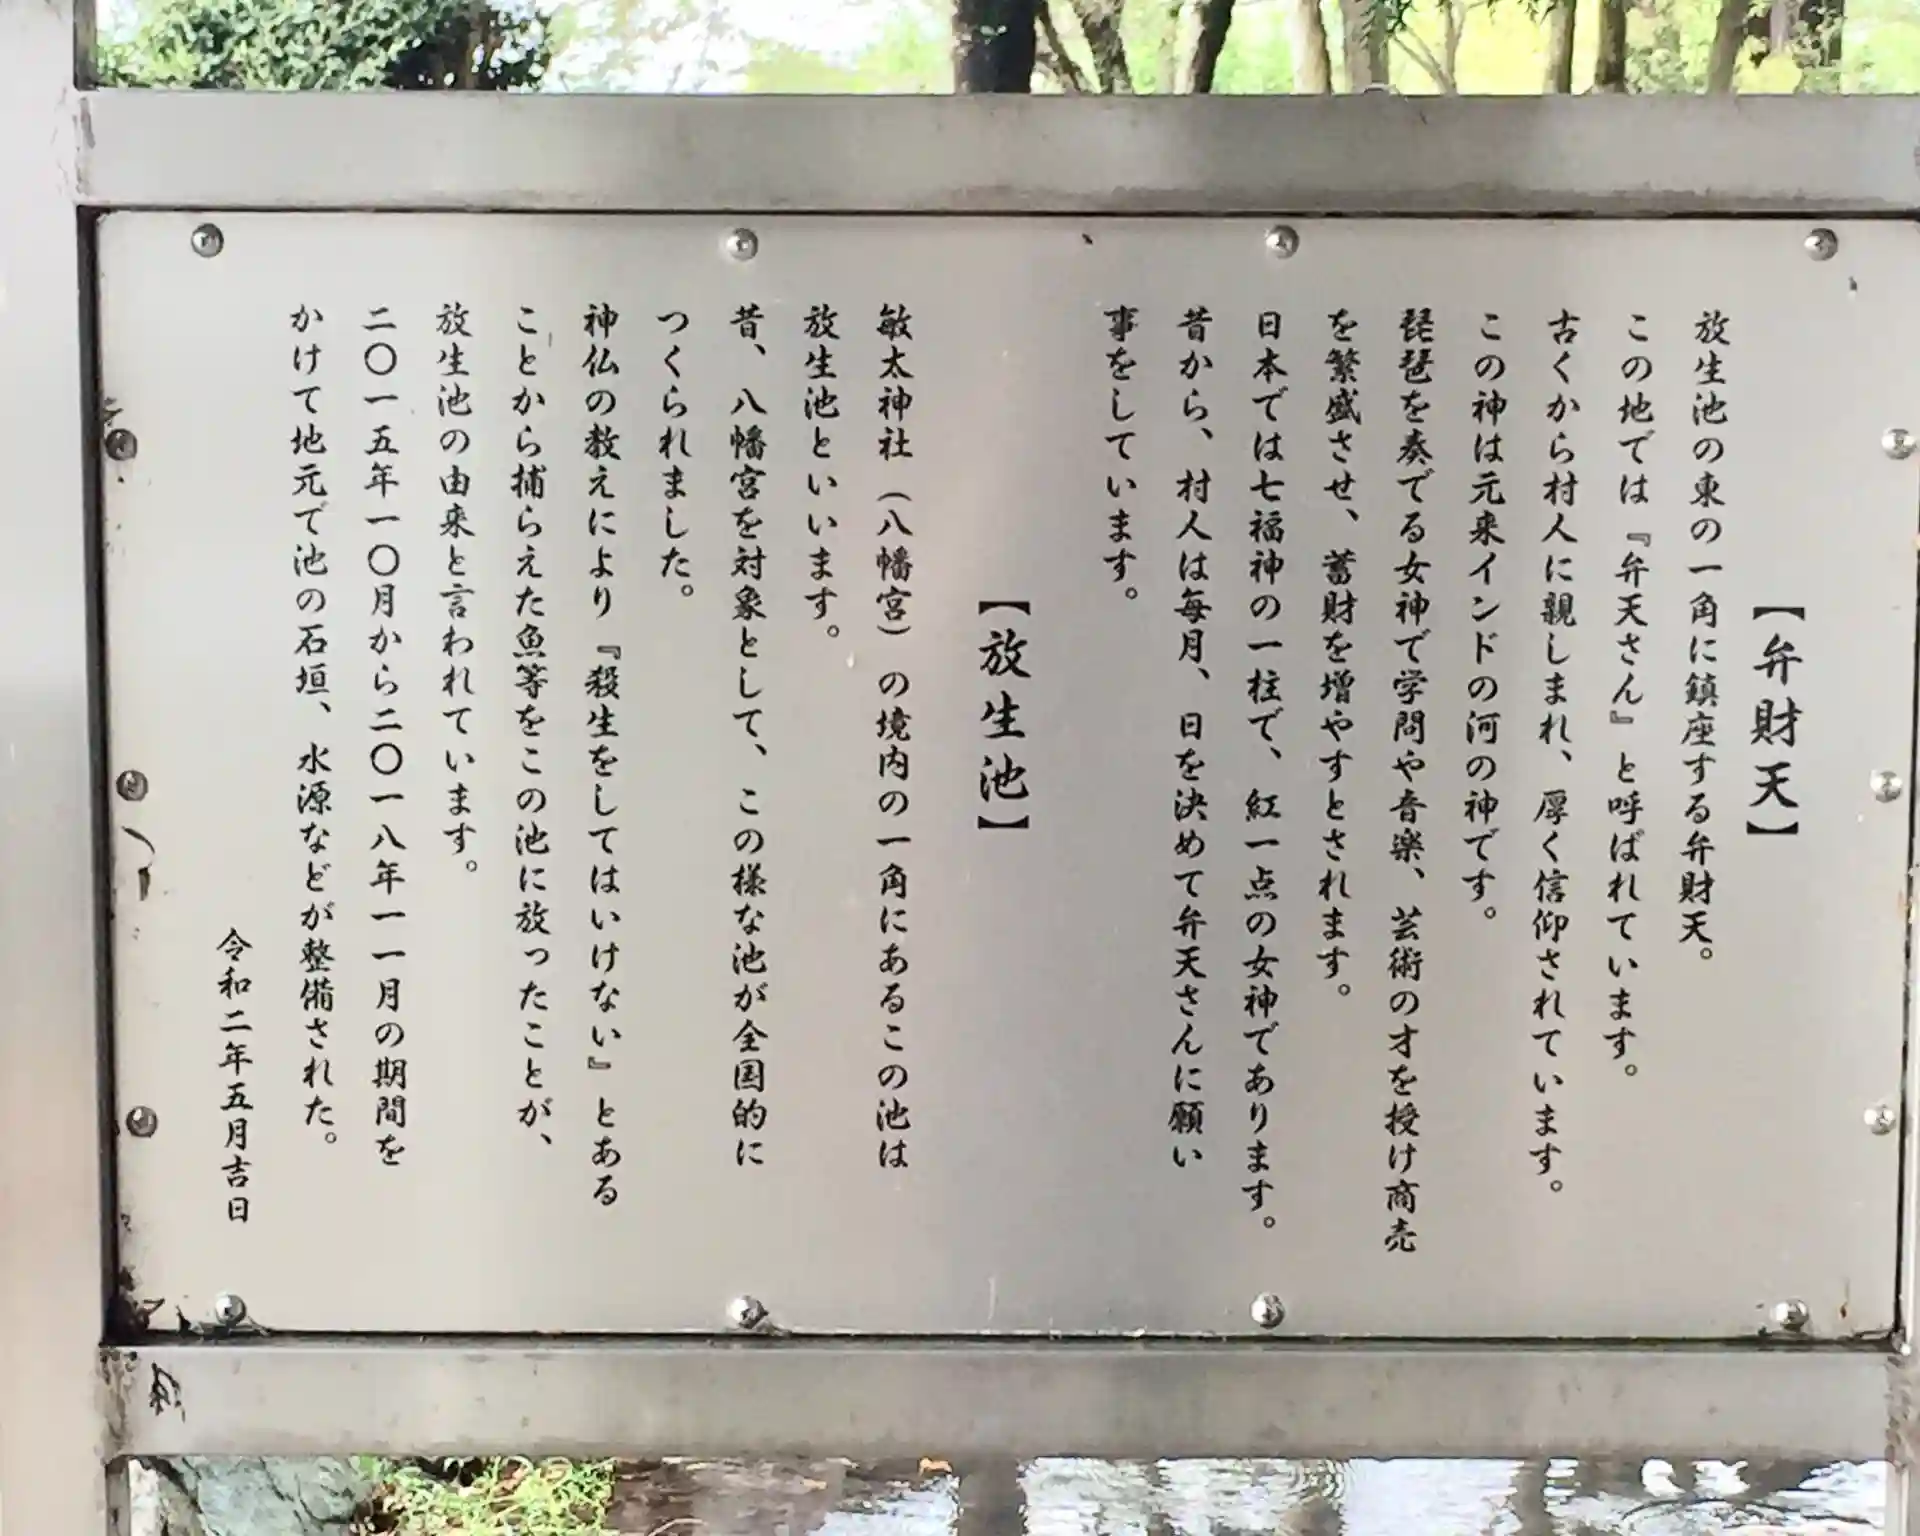 【弁財天】
放生池の東の一角に鎮座する弁財天。
この地では『弁天さん』と呼ばれています。
古くから村人に親しまれ、厚く信仰されています。
この神は元来インドの河の神です。
琵琶を奏でる女神で学問や音楽、芸術の才を授け商売
を繁盛させ、蓄財を増やすとされます。
日本では七福神の一柱で、紅一点の女神であります。
昔から、村人は毎月、日を決めて弁天さんに願い
事をしています。
【放生池】
敏太神社（八幡宮）の境内の一角にあるこの池は
放生池といいます。
昔、八幡宮を対象として、この様な池が全国的に
つくられました。
神仏の教えにより『殺生をしてはいけない』とある
ことから捕らえた魚等をこの池に放ったことが、
放生池の由来と言われています。
二〇一五年一〇月から二〇一八年一一月の期間を
かけて地元で池の石垣、水源などが整備された。
令和二年五月吉日